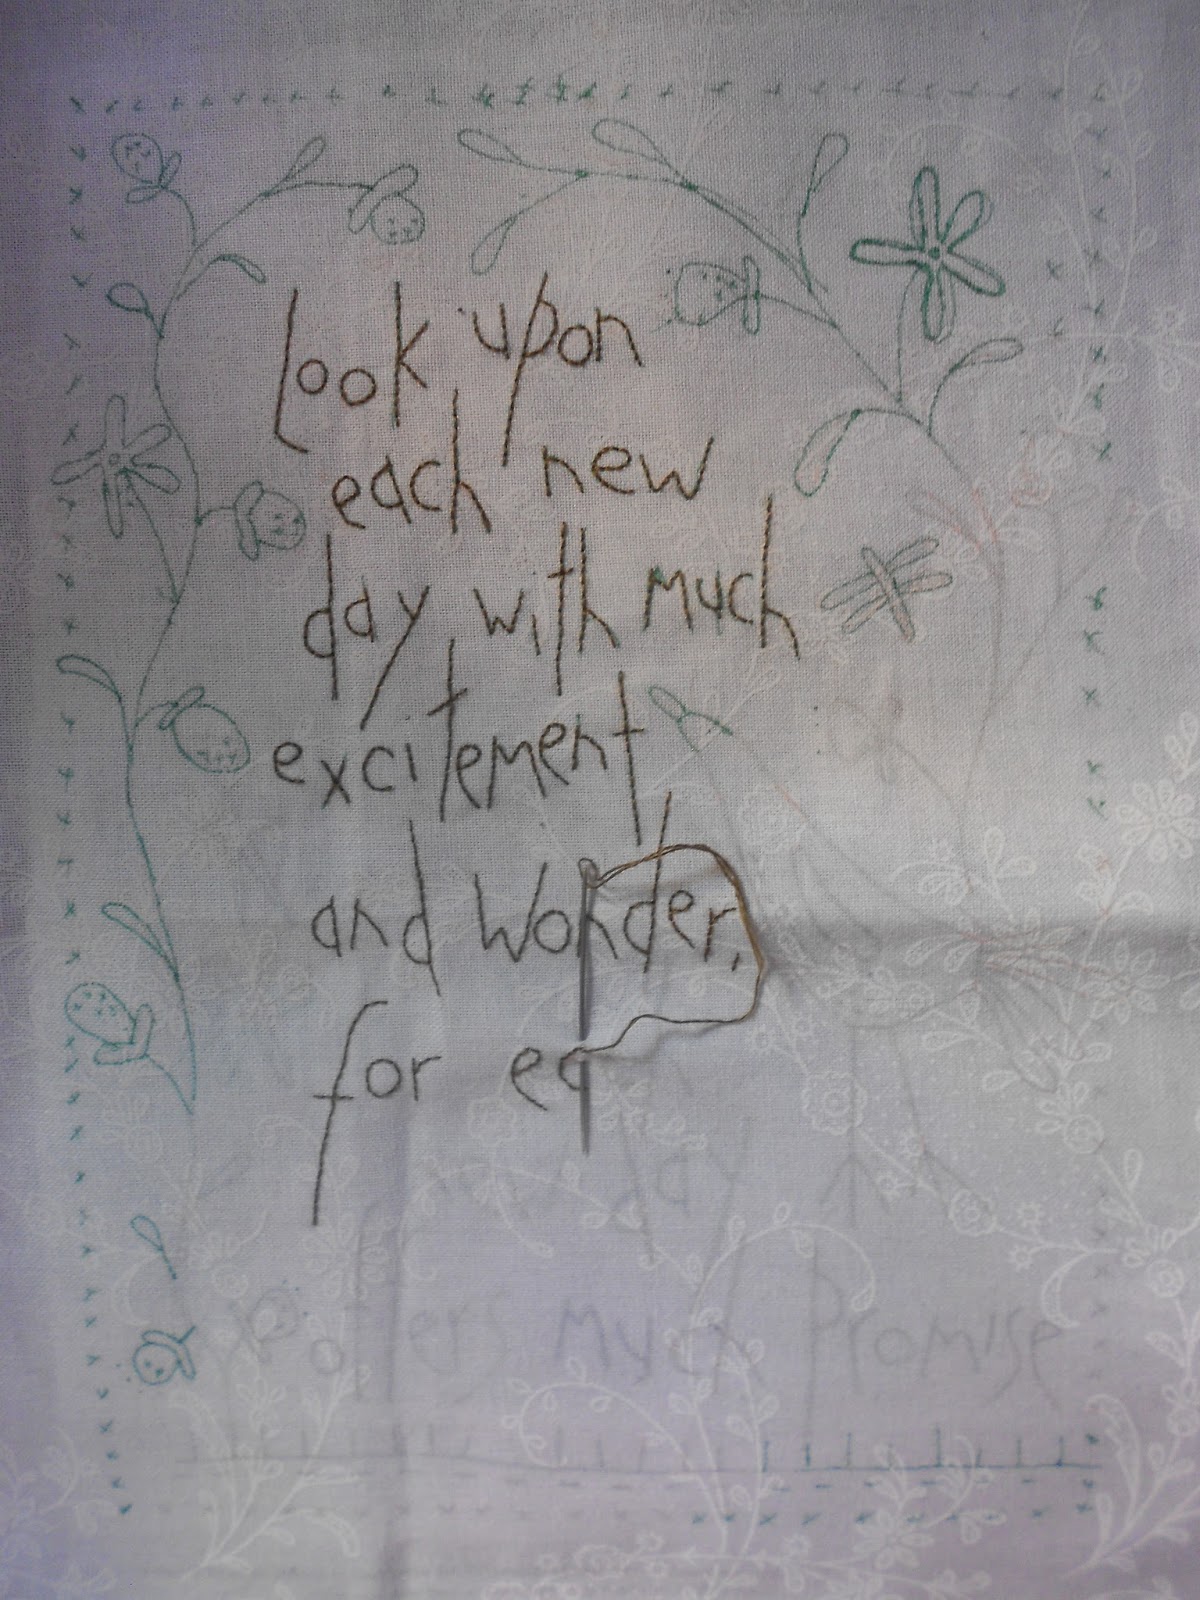 Look upon
each new
day with much
excitement
and Wonder,
for ea
day
offers much Promise